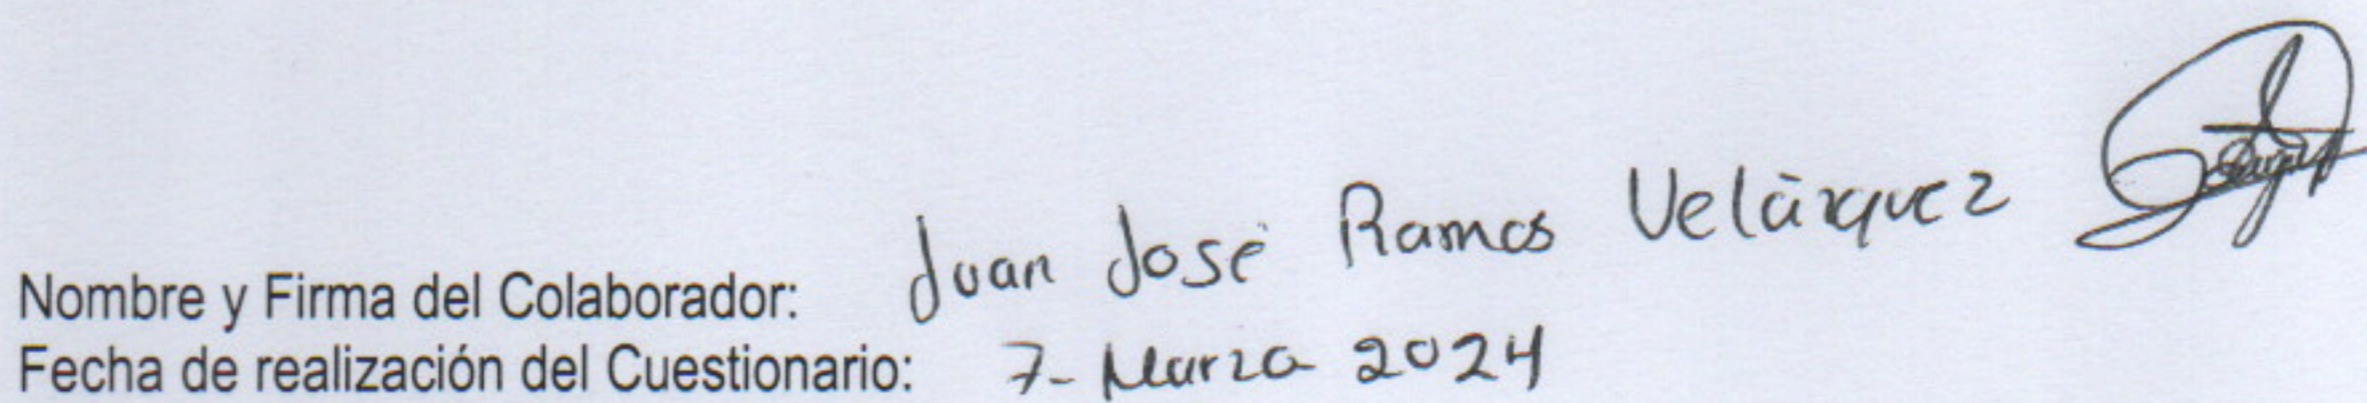 Nombre y Firma del Colaborador: Juan José Ramos Velázquez
Fecha de realización del Cuestionario: 7- Marzo 2024